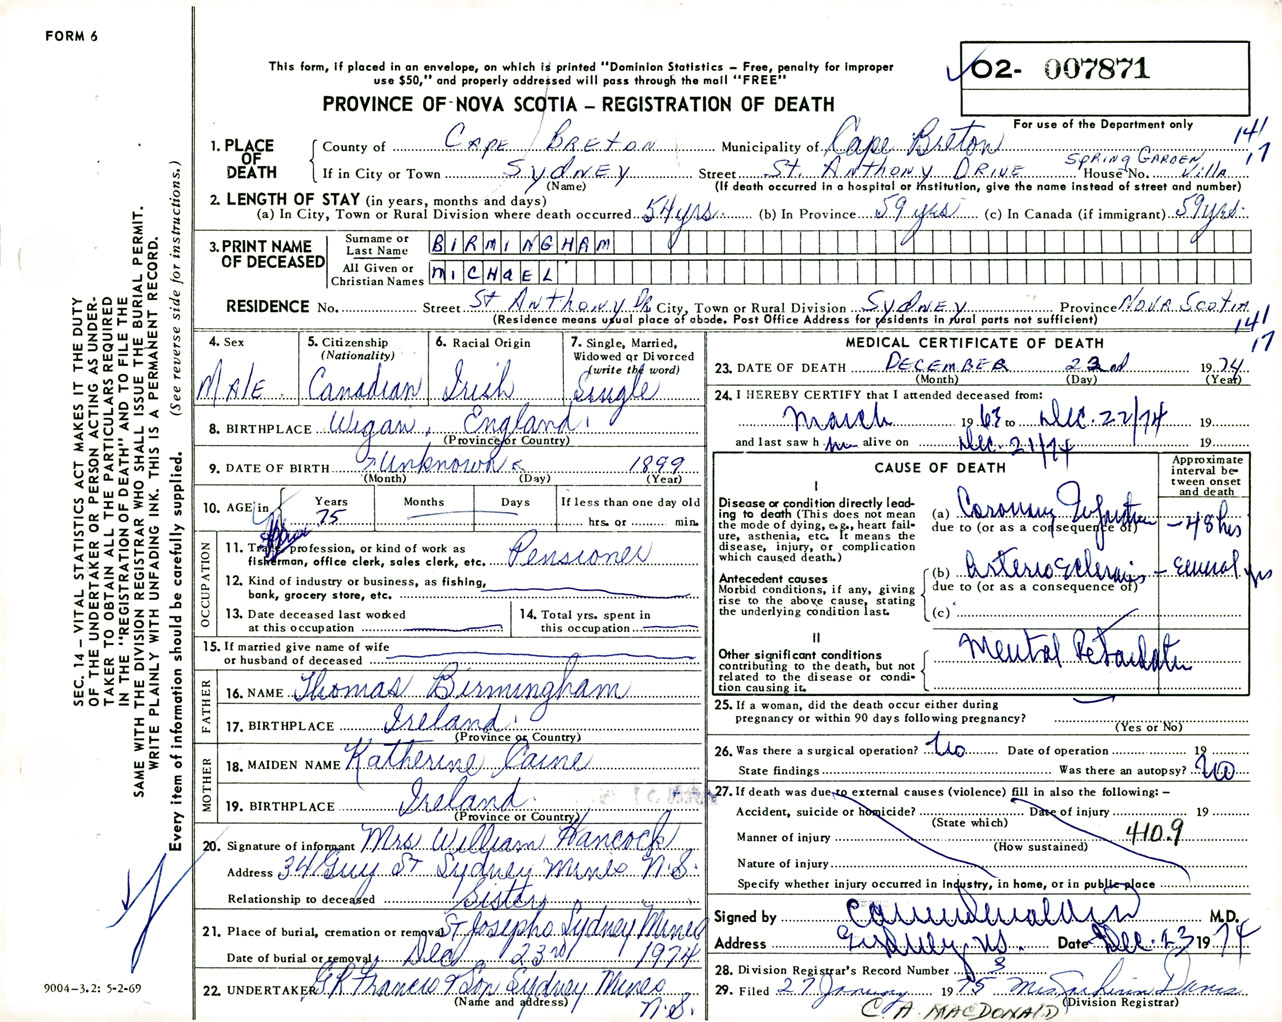 FORM 6
This form, if placed in an envelope, on which is printed "Dominion Statistics – Free, penalty for improper
use $50," and properly addressed will pass through the mail "FREE"
O2- 007871
PROVINCE OF NOVA SCOTIA – REGISTRATION OF DEATH
For use of the Department only
141
17
1. PLACE OF DEATH
County of CAPE BRETON Municipality of Cape Breton
If in City or Town SYDNEY Street St. ANTHONY DRIVE House No. SPRING GARDEN Villa
(Name) (If death occurred in a hospital or institution, give the name instead of street and number)
2. LENGTH OF STAY (in years, months and days)
(a) In City, Town or Rural Division where death occurred 54 yrs. (b) In Province 59 yrs (c) In Canada (if immigrant) 59 yrs.
3. PRINT NAME OF DECEASED
Surname or Last Name BIRMINGHAM
All Given or Christian Names MICHAEL
RESIDENCE No. Street St ANTHONY DR City, Town or Rural Division SYDNEY Province NOVA SCOTIA
(Residence means usual place of abode. Post Office Address for residents in rural parts not sufficient)
141
17
4. Sex MALE
5. Citizenship (Nationality) Canadian
6. Racial Origin Irish
7. Single, Married, Widowed or Divorced (write the word) Single
8. BIRTHPLACE Wigan, England.
(Province or Country)
9. DATE OF BIRTH Unknown 1899
(Month) (Day) (Year)
10. AGE in Years 75 Months Days If less than one day old
hrs. or min.
Approx
OCCUPATION
11. Trade, profession, or kind of work as
fisherman, office clerk, sales clerk, etc. Pensioner
12. Kind of industry or business, as fishing,
bank, grocery store, etc.
13. Date deceased last worked
at this occupation
14. Total yrs. spent in
this occupation
15. If married give name of wife
or husband of deceased
FATHER
16. NAME Thomas Birmingham
17. BIRTHPLACE Ireland.
(Province or Country)
MOTHER
18. MAIDEN NAME Katherine Caine
19. BIRTHPLACE Ireland.
(Province or Country)
20. Signature of informant Mrs William Hancock
Address 34 Guy St Sydney Mines N.S.
Relationship to deceased Sister
21. Place of burial, cremation or removal St Josephs Sydney Mines
Date of burial or removal Dec 23rd 1974
22. UNDERTAKER G.R. Francis & Son Sydney Mines
(Name and address) N.S.
MEDICAL CERTIFICATE OF DEATH
23. DATE OF DEATH DECEMBER 22nd 1974
(Month) (Day) (Year)
24. I HEREBY CERTIFY that I attended deceased from:
March 1963 to Dec. 22/74 19
and last saw him alive on Dec. 21/74 19
CAUSE OF DEATH
Approximate interval between onset and death
I
Disease or condition directly leading to death (This does not mean
the mode of dying, e.g., heart failure, asthenia, etc. It means the
disease, injury, or complication
which caused death.)
(a) Coronary Infarction – 48 hrs
due to (or as a consequence of)
Antecedent causes
Morbid conditions, if any, giving
rise to the above cause, stating
the underlying condition last.
(b) Arteriosclerosis – several yrs
due to (or as a consequence of)
(c)
II
Other significant conditions
contributing to the death, but not
related to the disease or condition causing it.
Mental Retardation
25. If a woman, did the death occur either during
pregnancy or within 90 days following pregnancy?
(Yes or No)
26. Was there a surgical operation? No Date of operation 19
State findings Was there an autopsy? No
27. If death was due to external causes (violence) fill in also the following: –
Accident, suicide or homicide? Date of injury 19
(State which)
Manner of injury 410.9
(How sustained)
Nature of injury
Specify whether injury occurred in industry, in home, or in public place
Signed by M.D.
Address Sydney, N.S. Date Dec. 23 1974
28. Division Registrar's Record Number 8
29. Filed 27 January 1975 Davis
(Division Registrar)
C. A. MACDONALD
SEC. 14 – VITAL STATISTICS ACT MAKES IT THE DUTY
OF THE UNDERTAKER OR PERSON ACTING AS UNDER-
TAKER TO OBTAIN ALL THE PARTICULARS REQUIRED
IN THE "REGISTRATION OF DEATH" AND TO FILE THE
SAME WITH THE DIVISION REGISTRAR WHO SHALL ISSUE THE BURIAL PERMIT.
WRITE PLAINLY WITH UNFADING INK. THIS IS A PERMANENT RECORD.
Every item of information should be carefully supplied. (See reverse side for instructions.)
9004-3.2: 5-2-69